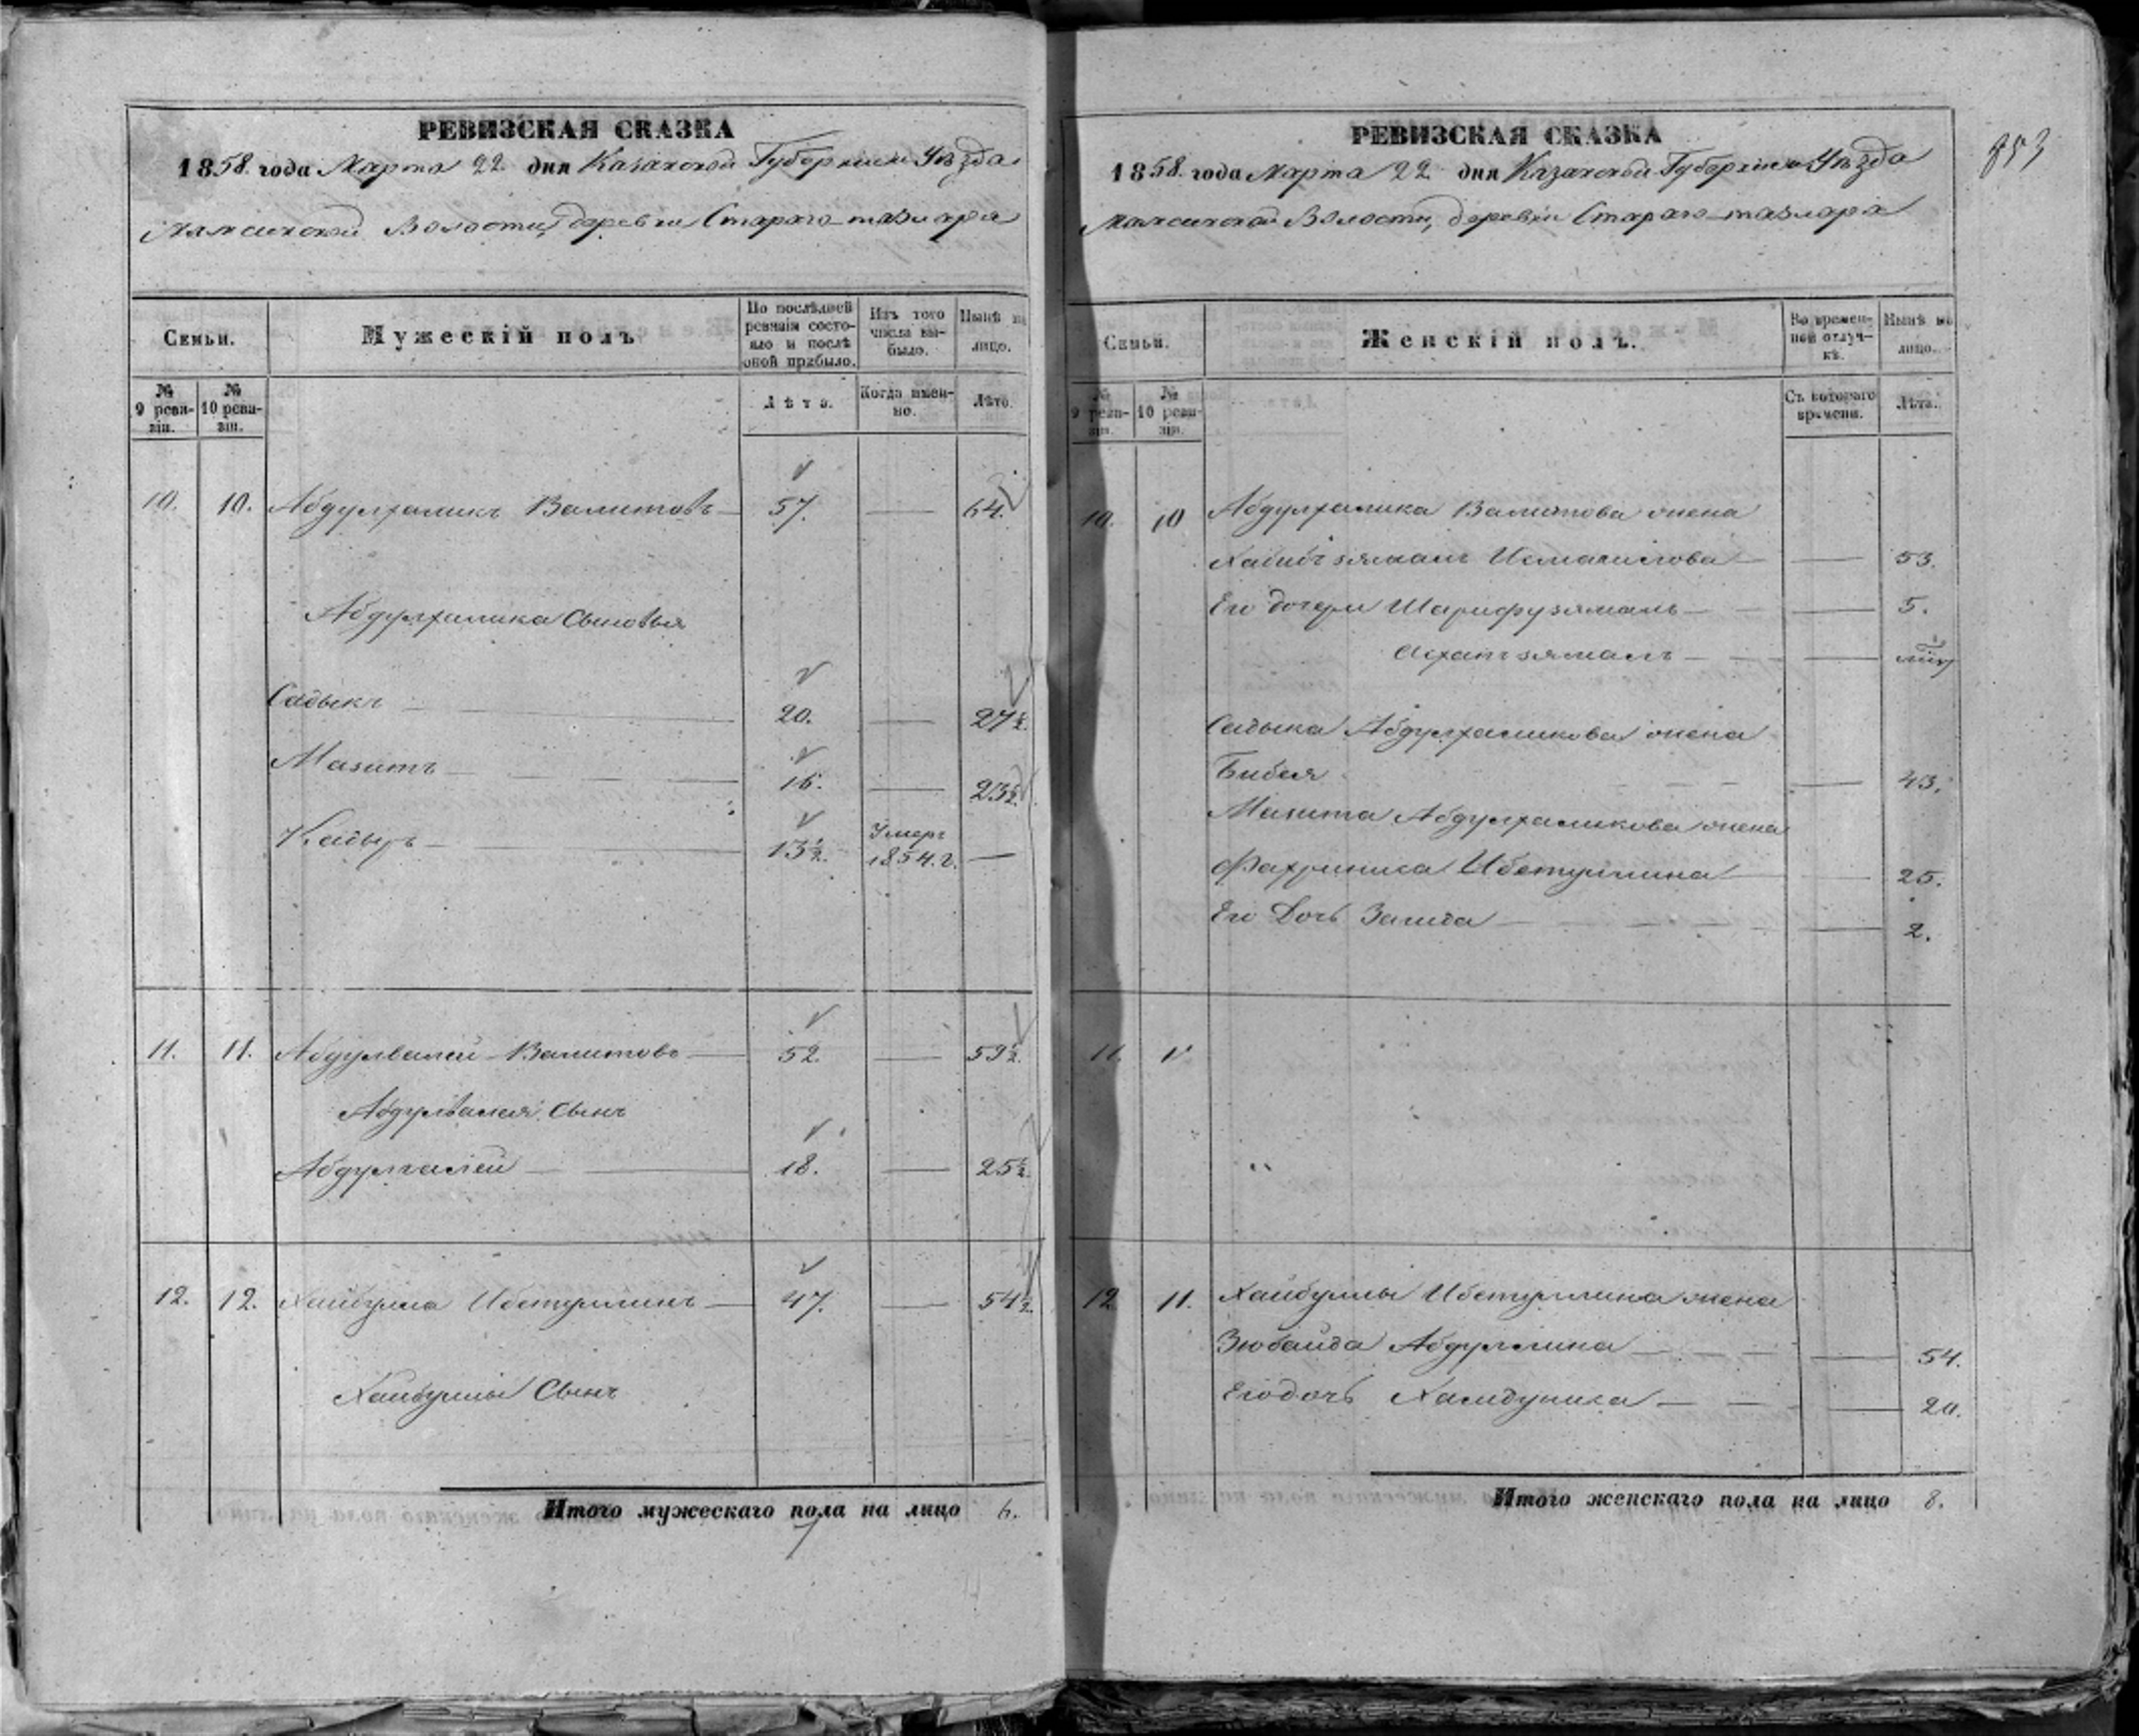 РЕВИЗСКАЯ СКАЗКА
1858. года Марта 22 дня Казанской Губернии Уѣзда
Волости, деревни Стараго-тазлара
Семьи.
Мужескiй полъ
По послѣдней ревизiи состояло и послѣ оной прибыло.
Изъ того числа выбыло.
Нынѣ на лицо.
№ 9 ревизiи.
№ 10 ревизiи.
Лѣта.
Когда именно.
Лѣта.
10. 10. Абдулхаликъ Валитовъ 57. — 64.
Абдулхалика Сыновья
Садыкъ 20. — 27½.
Мазитъ 16. — 23½.
Кадыръ 13½. Умеръ 1854.г. —
11. 11. Абдулвалей Валитовъ 52. — 59½.
Абдулвалея Сынъ
Абдулгалей 18. — 25½.
12. 12. Хайбулла Ибетуллинъ 47. — 54½.
Хайбуллы Сынъ
Итого мужескаго пола на лицо 6.
7
РЕВИЗСКАЯ СКАЗКА
853
1858. года Марта 22 дня Казанской Губернии Уѣзда
Волости, деревни Стараго-тазлара
Семьи.
Женскiй полъ.
Во временной отлучкѣ.
Нынѣ на лицо.
№ 9 ревизiи.
№ 10 ревизiи.
Съ котораго времени.
Лѣта.
10. 10 Абдулхалика Валитова жена
Исмагилова — 53.
Его дочери Шарифузямаль — 5.
Садыка Абдулхаликова жена
Бибея — 43.
Мазита Абдулхаликова жена
Фахриниса Ибетуллина — 25.
Его Дочь Загида — 2.
11. V
12 11. Хайбуллы Ибетуллина жена
Зюбайда Абдуллина — 54.
Его дочь Хамдуниса — 20.
Итого женскаго пола на лицо 8.